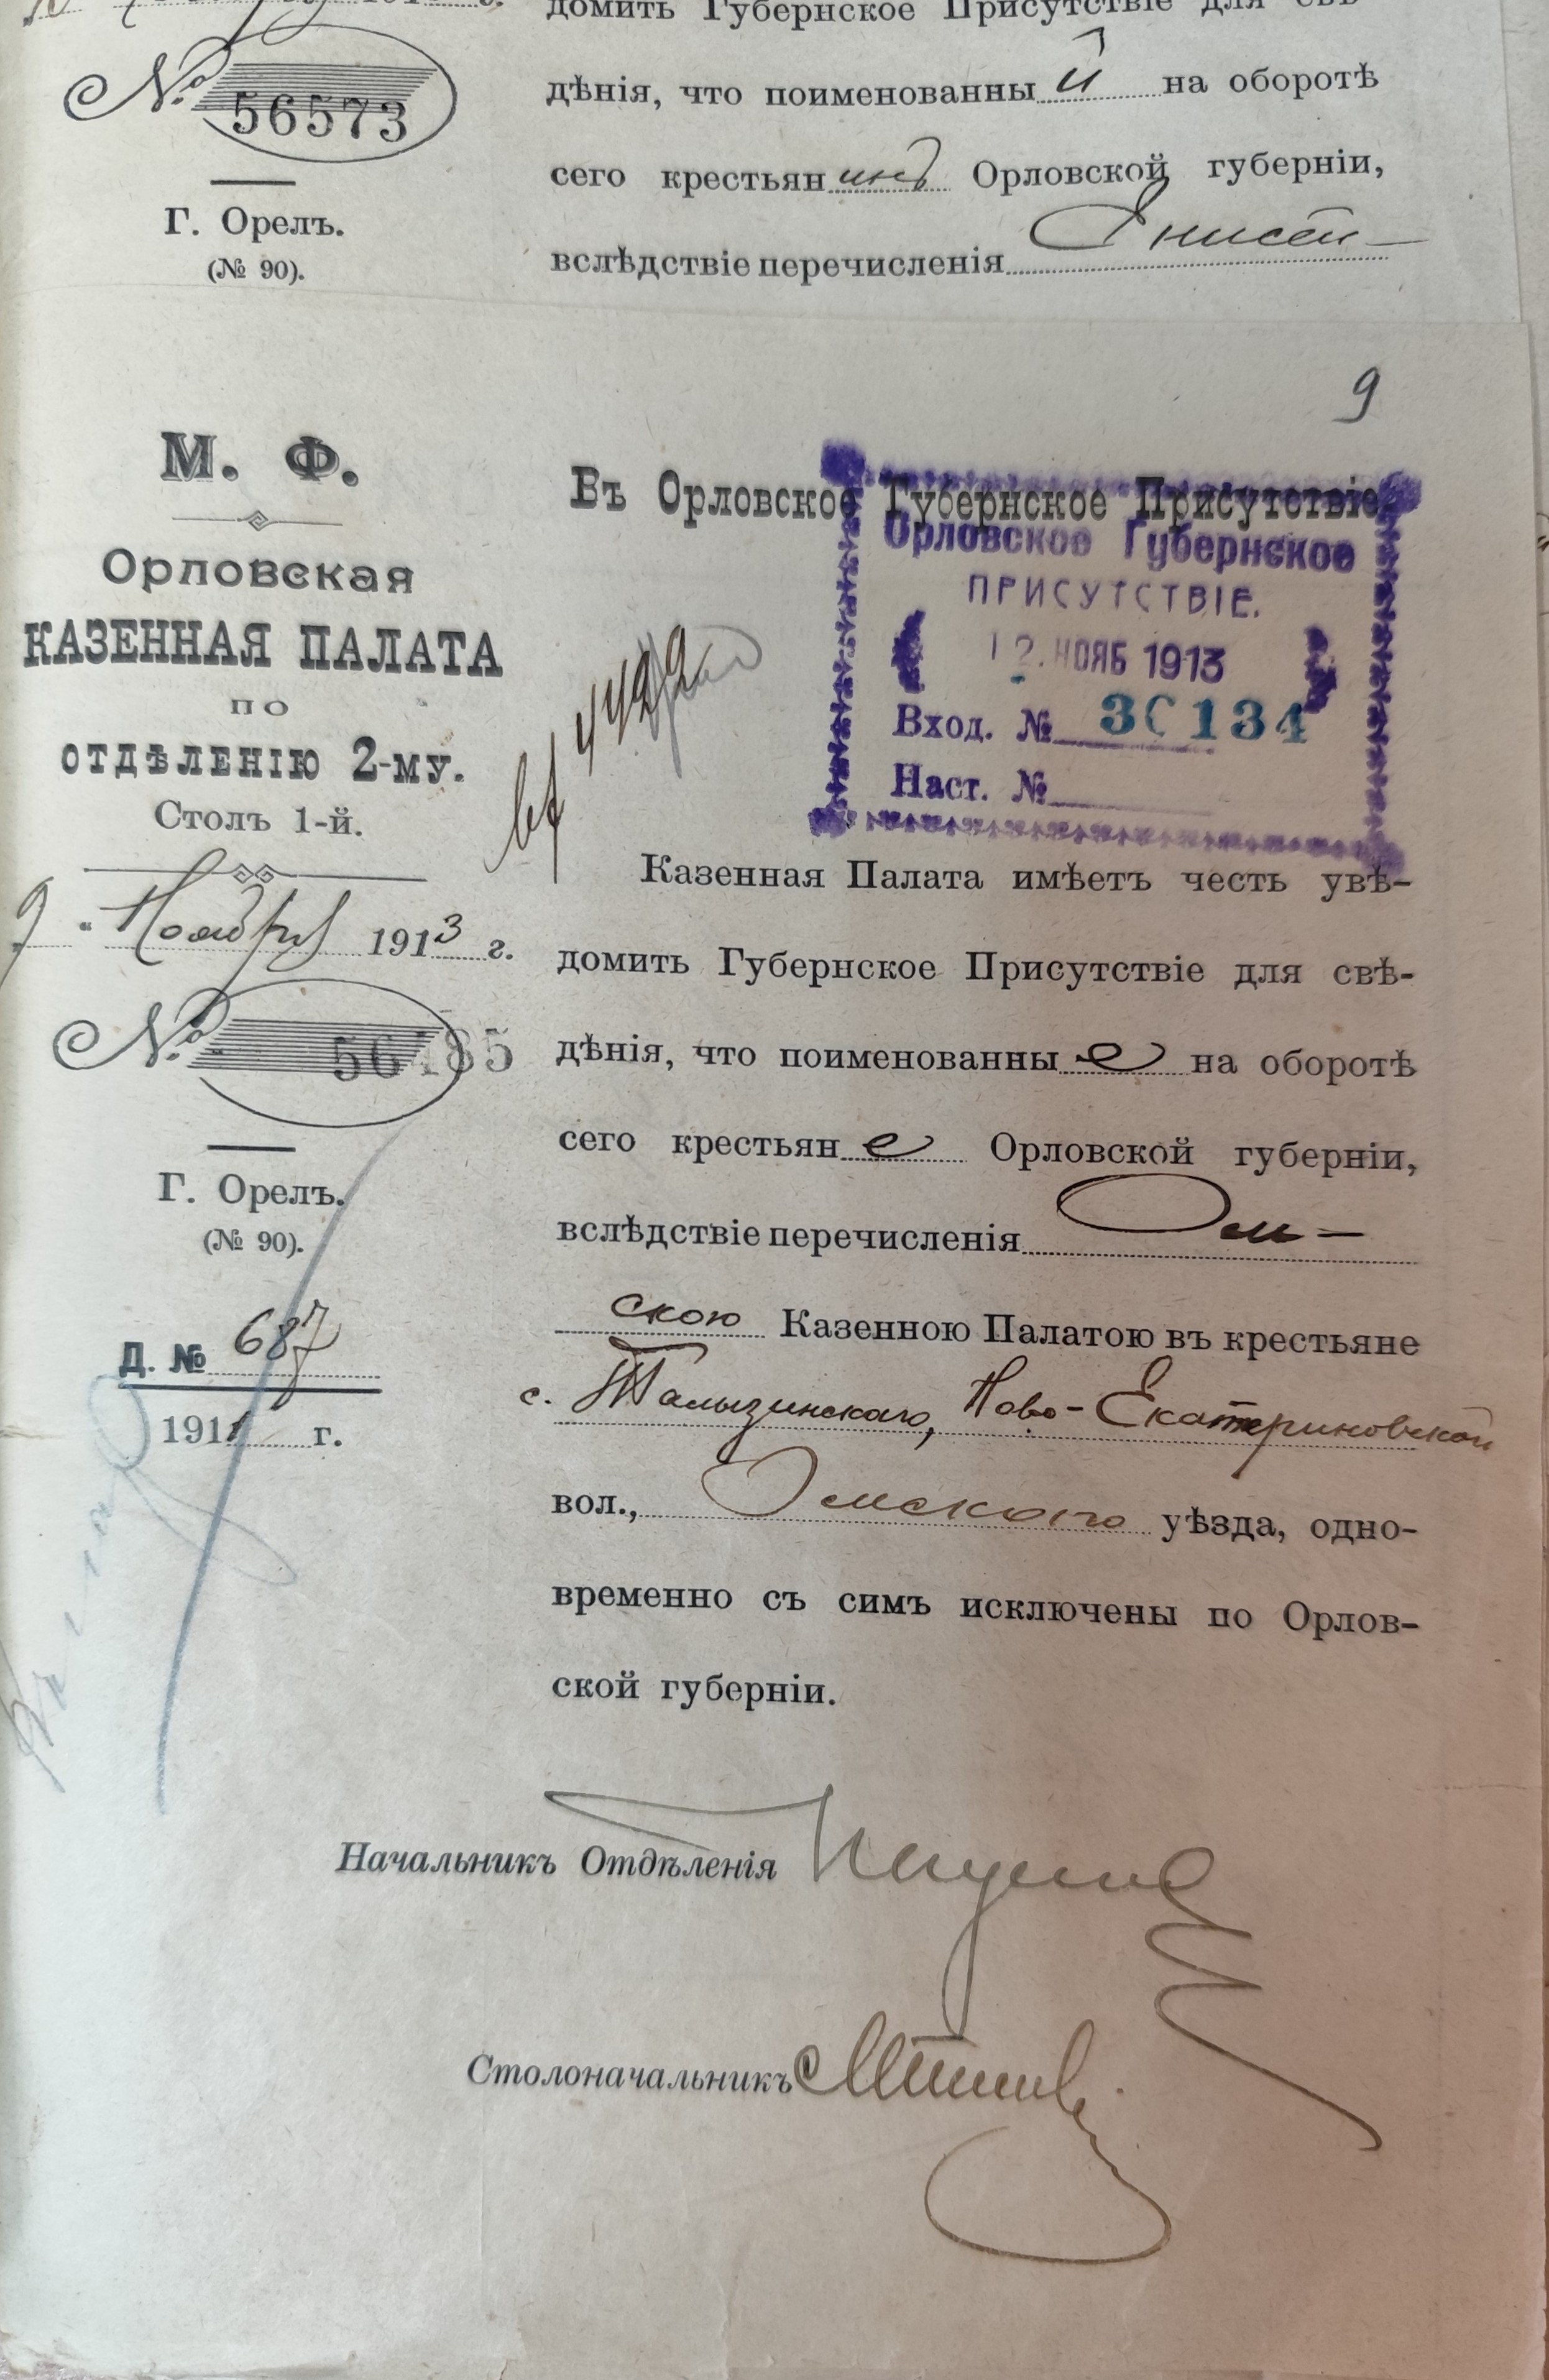 домить Губернское Присутствіе для свѣ-
№ 56573
дѣнія, что поименованный на оборотѣ
сего крестьянинъ Орловской губерніи,
Г. Орелъ.
(№ 90).
вслѣдствіе перечисленія Енисей-
9
М. Ф.
Орловская
КАЗЕННАЯ ПАЛАТА
ПО
ОТДѢЛЕНІЮ 2-МУ.
Столъ 1-й.
9 " Ноября 1913 г.
№ 56485
Г. Орелъ.
(№ 90).
Д. № 687
1911 г.
Въ Орловское Губернское Присутствіе.
Орловское Губернское
ПРИСУТСТВІЕ.
12. НОЯБ 1913
Вход. № 30134
Наст. №
Казенная Палата имѣетъ честь увѣ-
домить Губернское Присутствіе для свѣ-
дѣнія, что поименованные на оборотѣ
сего крестьяне Орловской губерніи,
вслѣдствіе перечисленія Ом-
скою Казенною Палатою въ крестьяне
с. Талызинскаго, Ново-Екатериновской
вол., Омскаго уѣзда, одно-
временно съ симъ исключены по Орлов-
ской губерніи.
Начальникъ Отдѣленія
Столоначальникъ